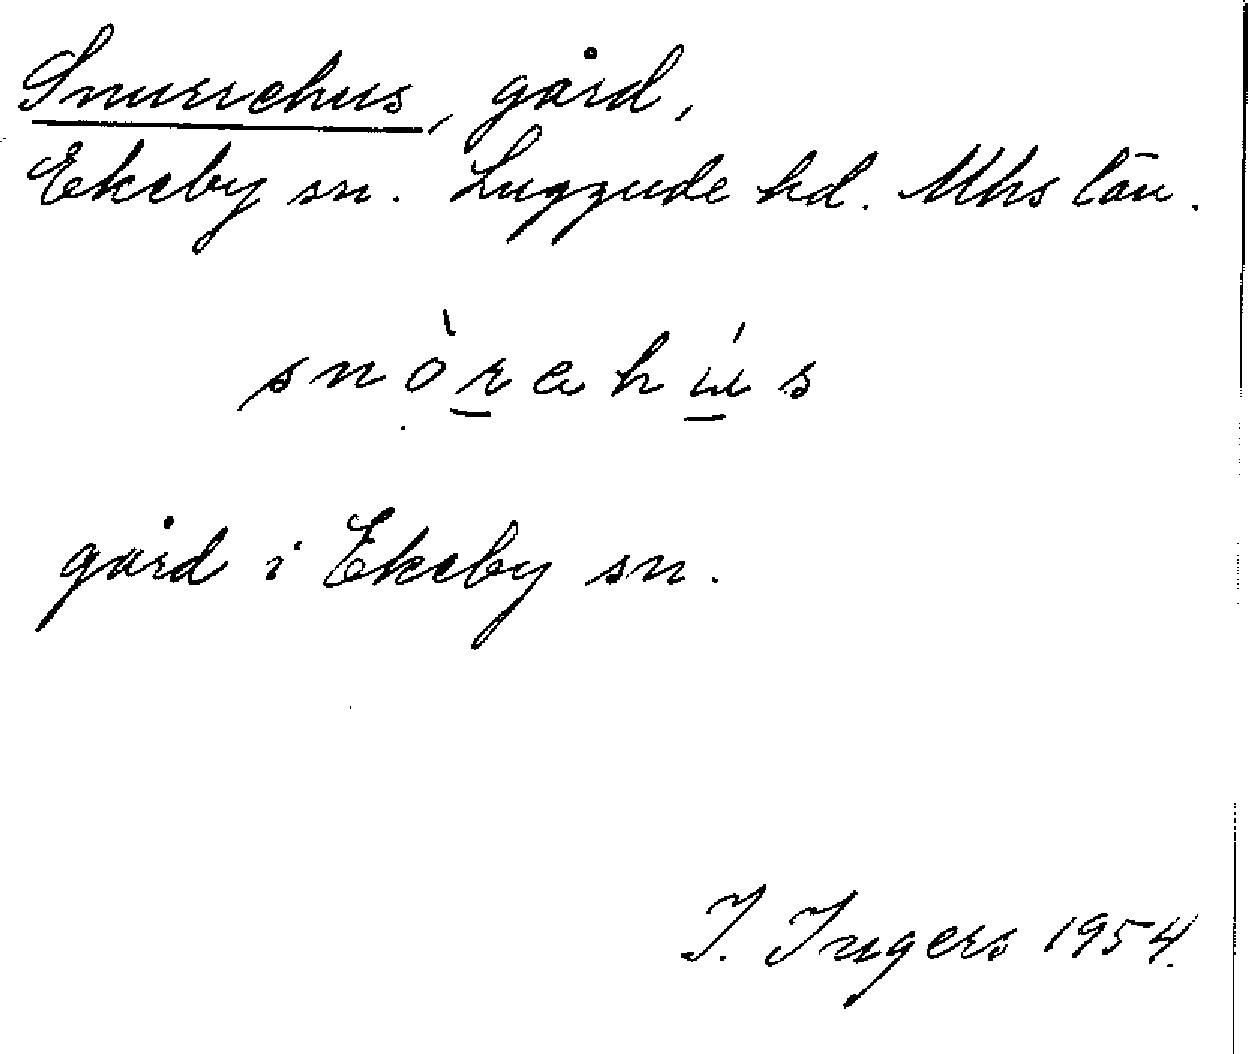 Snurrehus, gård,
Ekeby sn. Luggude hd. Mhs län.
snòrahús
gård i Ekeby sn.
I. Ingers 1954.